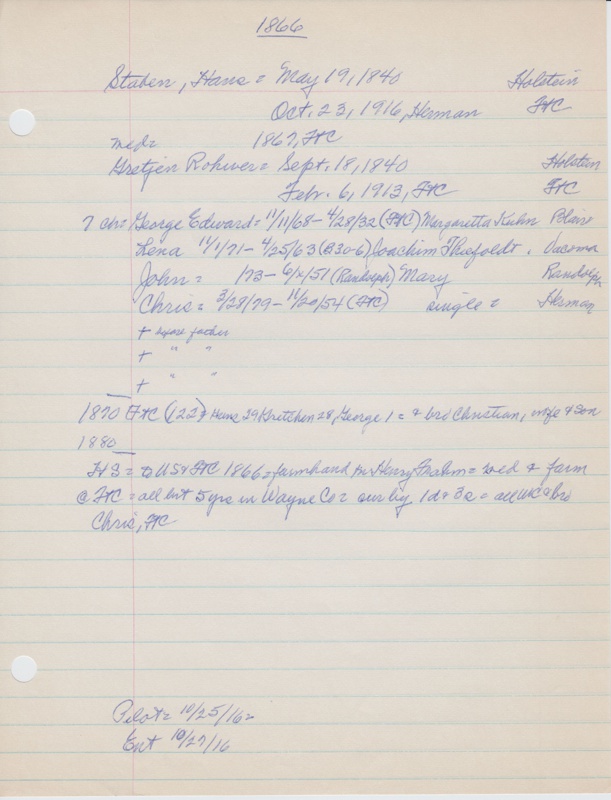 1866
Staben, Hans = May 19, 1840 Holstein
Oct. 23, 1916, Herman FtC
med = 1867, FtC
Gretjen Rohwer = Sept. 18, 1840 Holstein
Feb. 6, 1913, FtC FtC
7 ch = George Edward = 11/11/68 - 4/28/32 (FtC) Margaretta Kuhn
Lena 11/1/71 - 4/25/63 (B30-6) Joachim Thiefoldt
John = /73 - 6/x/51 (Randolph) Mary Randolph
Chris = 3/28/79 - 11/20/54 (FtC) single = Herman
+ before father
+ " "
+ " "
1870 FtC (122) Hans 29 Gretchen 28 George 1 = & bro Christian, wife & son
1880
HS = to US & FtC 1866 = farmhand for Henry Frahm = wed & farm
@ FtC = all but 5 yrs in Wayne Co = surv by 1 d & 3 s = all & bro
Chris, FtC
Pilot = 10/25/16 =
Ent 10/27/16